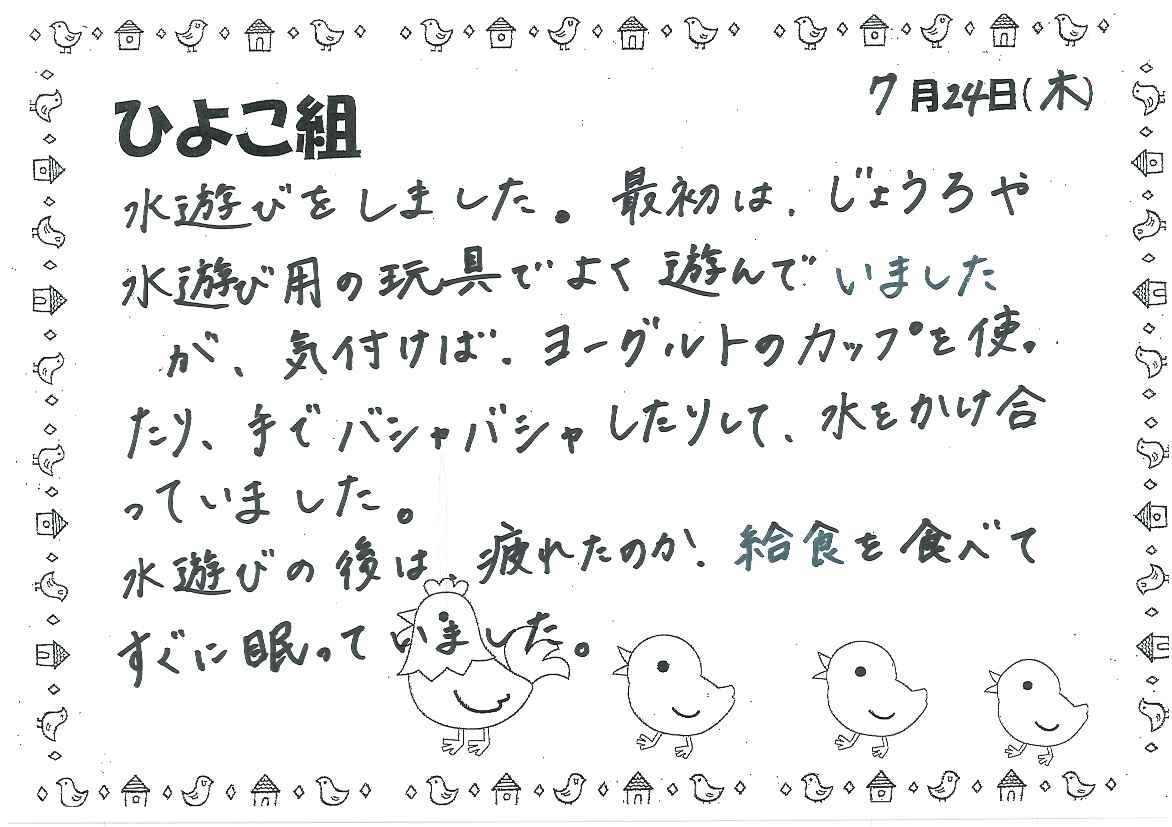 7月24日(木)
ひよこ組
水遊びをしました。最初は、じょうろや
水遊び用の玩具でよく遊んでいました
が、気付けば、ヨーグルトのカップを使っ
たり、手でバシャバシャしたりして、水をかけ合
っていました。
水遊びの後は、疲れたのか、給食を食べて
すぐに眠っていました。